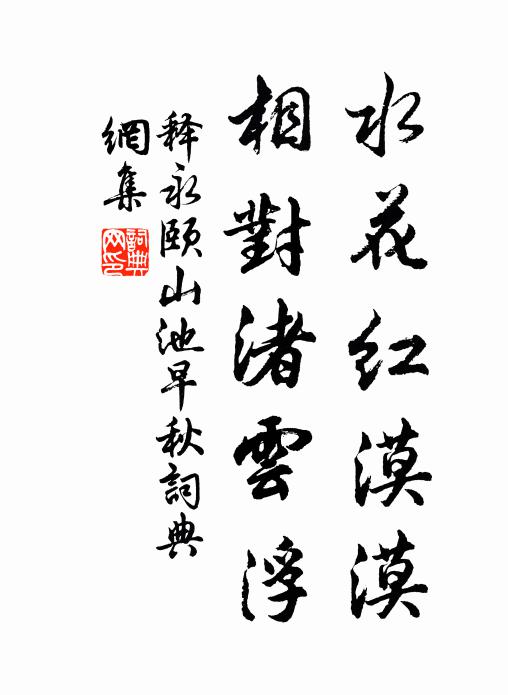 水花红漠漠
相對渚雲浮
释永颐山池早秋詞典
網集
詞典
网印